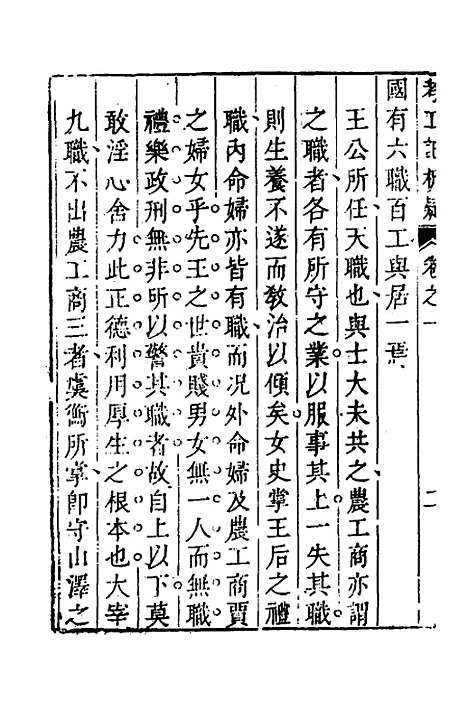 考工記析疑 卷之一 二
國有六職百工與居一焉
王公所任天職也與士大夫共之農工商亦謂
之職者各有所守之業以服事其上一失其職
則生養不遂而敎治以傾矣女史掌王后之禮
職內命婦亦皆有職而况外命婦及農工商賈
之婦女乎先王之世貴賤男女無一人而無職
禮樂政刑無非所以警其職者故自上以下莫
敢淫心舍力此正德利用厚生之根本也大宰
九職不出農工商三者虞衡所掌卽守山澤之